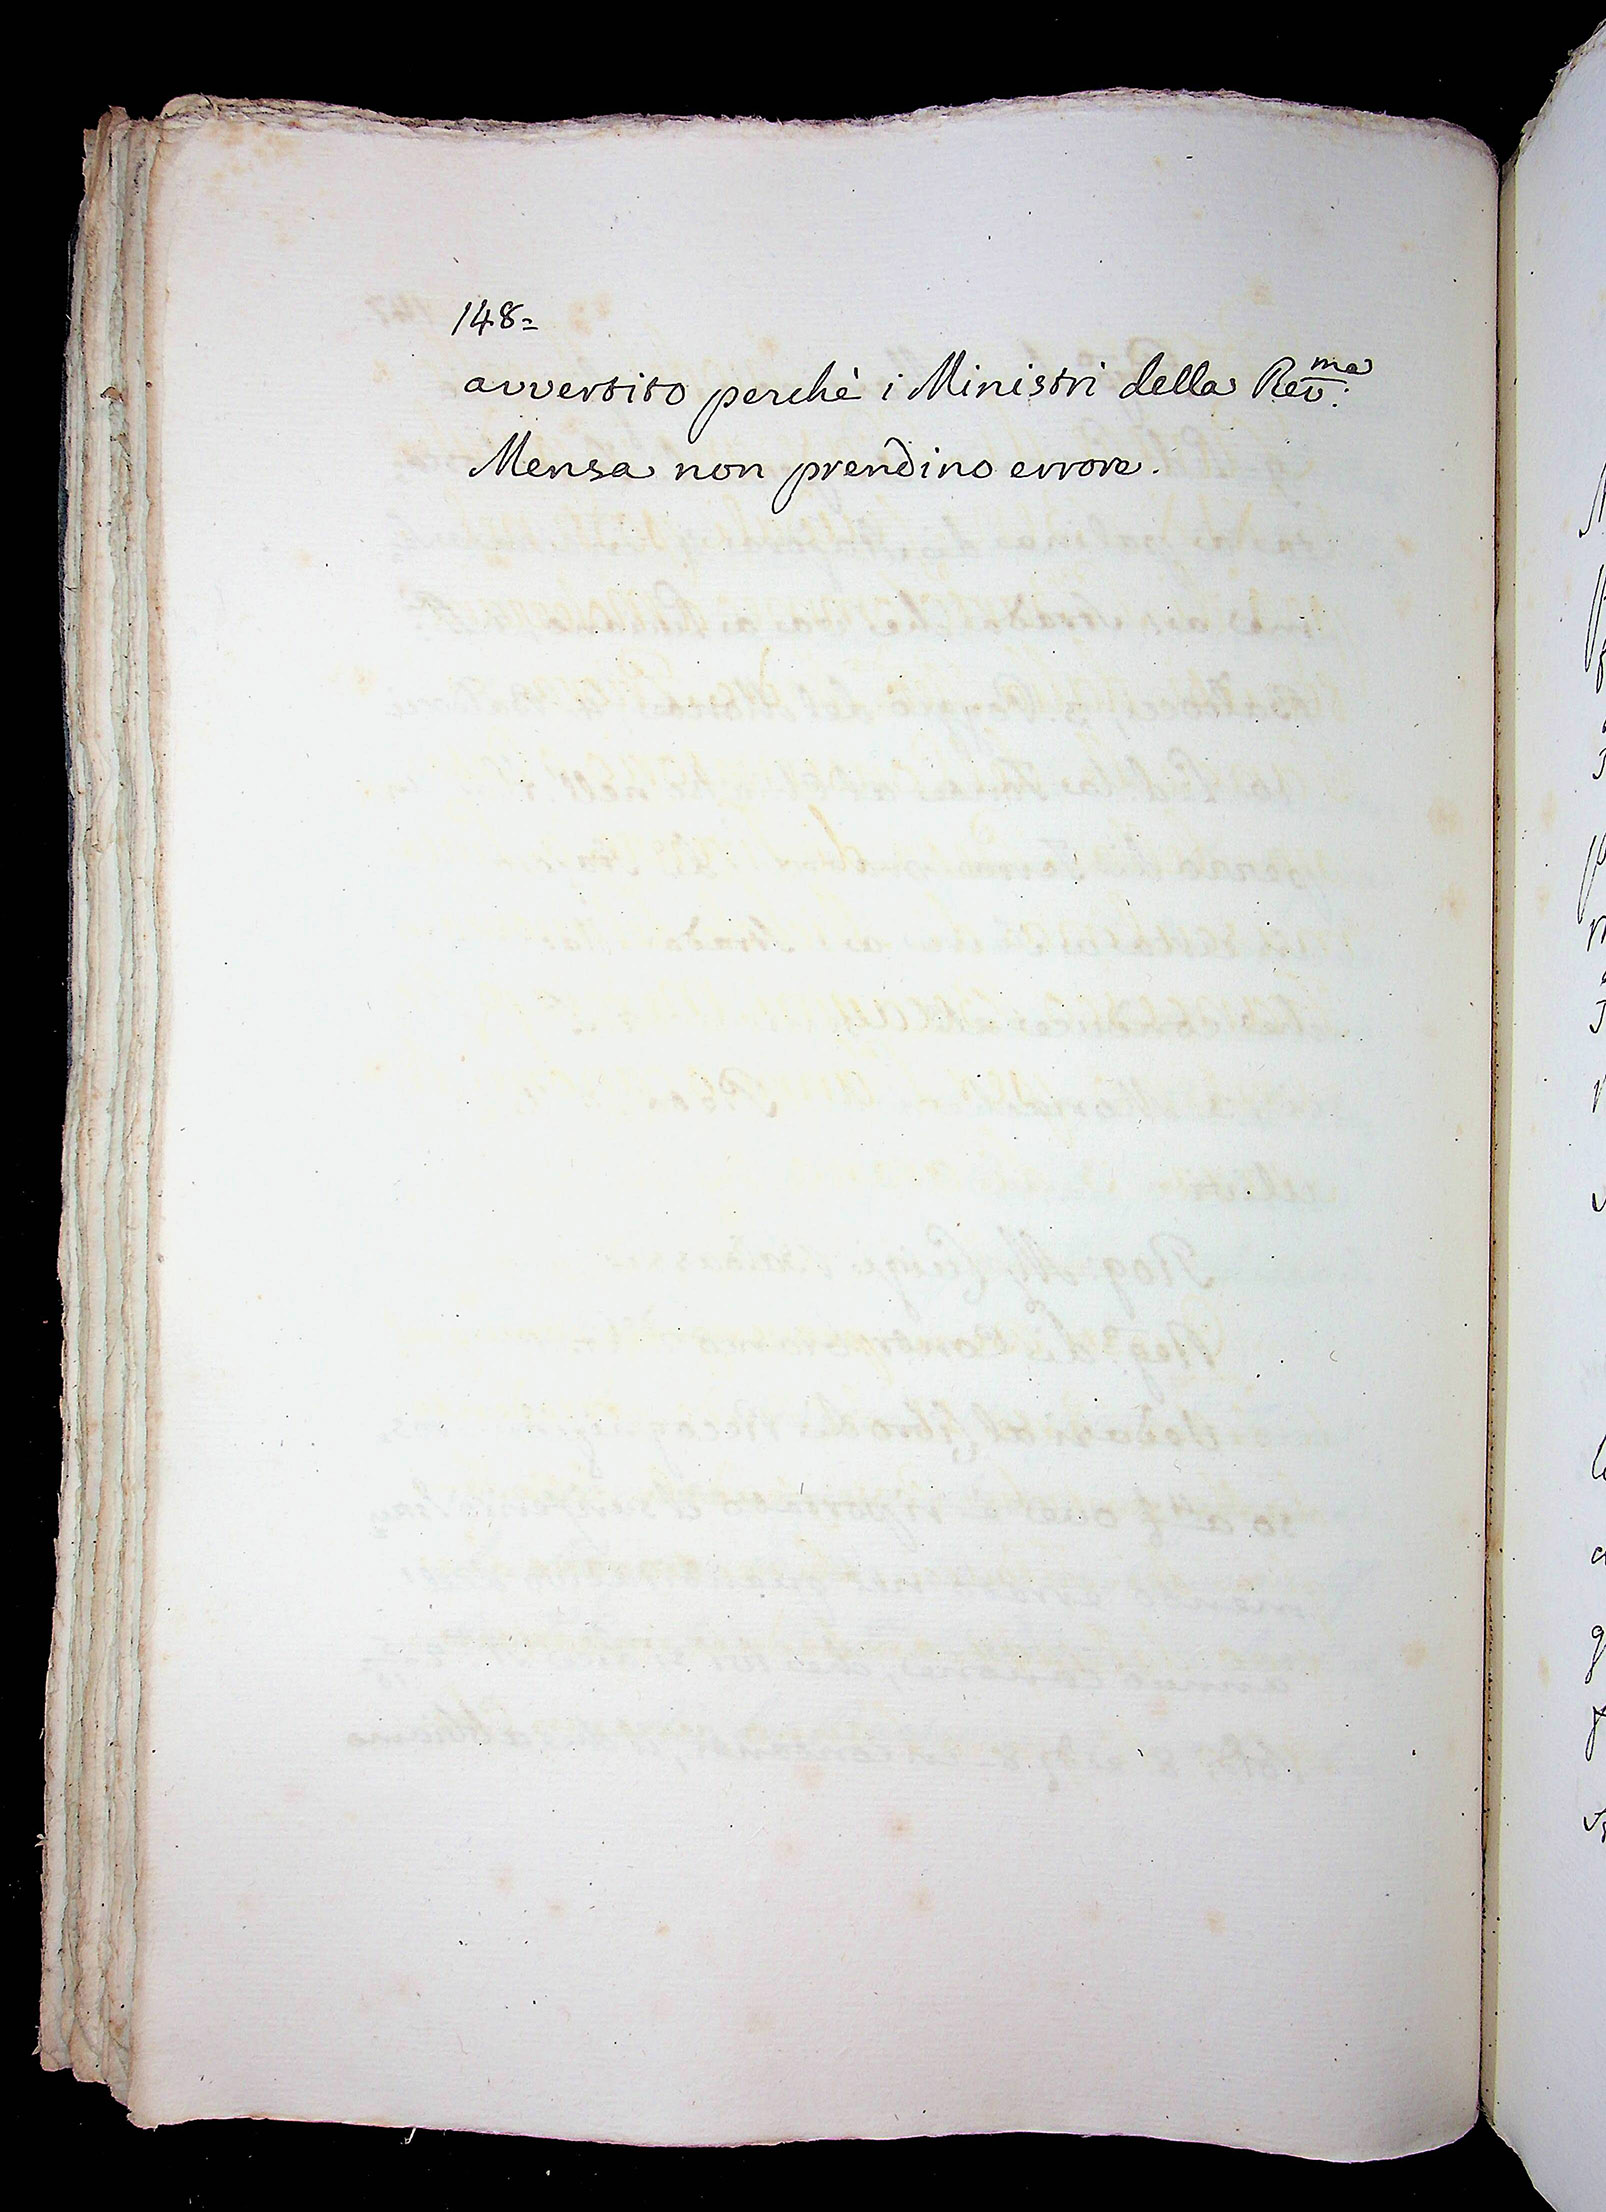 148=
avvertito perchè i Ministri della Rev.ma
Mensa non prendino errore.